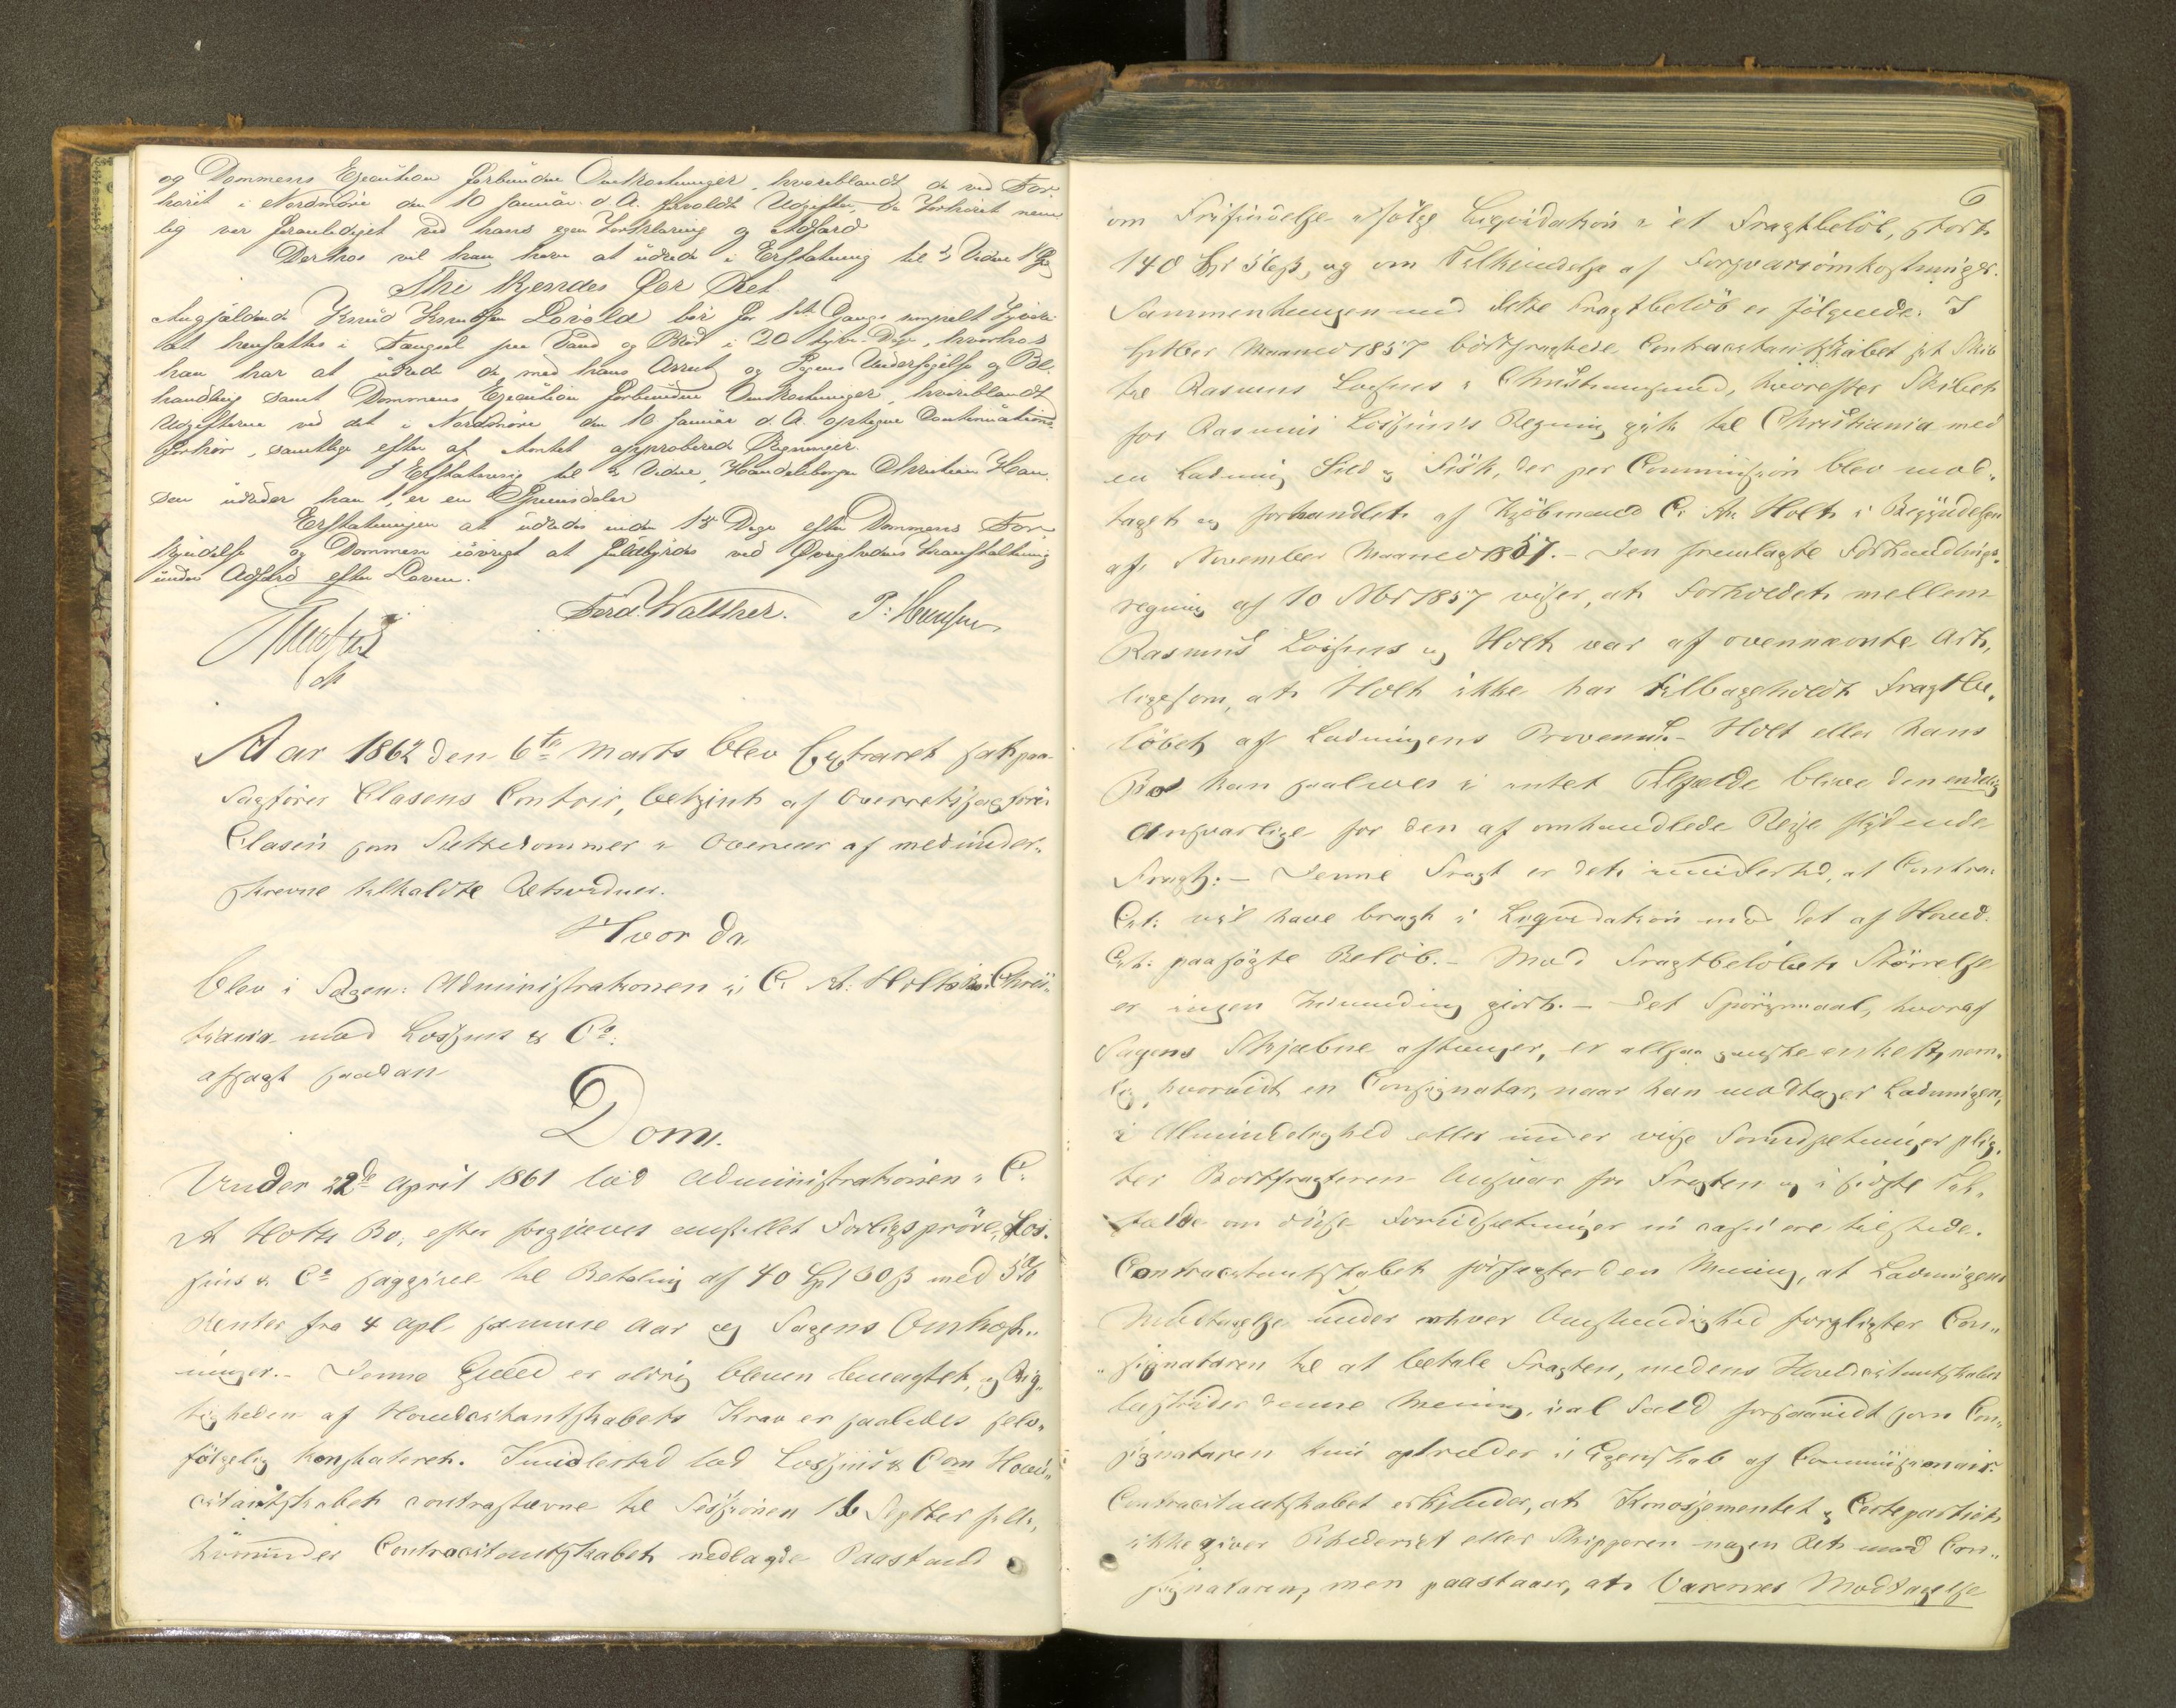 og Dommens Execution forbundne Omkostninger, hvoriblandt de ved For-
höret i Nordmöre den 10 Januar d. A. forvoldte Udgifter, da Forhöret nem-
lig var foranlediget ved hans egen Forklaring og Adfærd
Derhos vil han have at udrede i Erstatning til 3 Vidne 1 Spd
Thi Kjendes for Ret
Angjældende Knud Knudsen Lövold bör for 1ste Gang simpelt Tyverie
at hensættes i Fængsel paa Vand og Bröd i 20 tyve Dage, hvorhos
han har at udrede de med hans Arrest og Sagens Undersögelse og Be-
handling samt Dommens Execution forbundne Omkostninger, hvoriblandt
Udgifterne ved det i Nordmöre den 10 Januar d. A. optagne Continuations-
forhör, samtlige efter af Amtet approberede Regninger.
I Erstatning til 3 Vidne, Handelsborger Christian Han-
sen udreder han 1, er en Speciesdaler
Erstatningen at udredes inden 15 Dage efter Dommens For-
kyndelse og Dommen iövrigt at fuldbyrdes ved Övrighedens Foranstaltning
under Adfærd efter Loven.
Ferd. Walther. P: Hansen
Aar 1862 den 6te Marts blev Extraret sat paa
Sagförer Clasens Contoir, betjent af Overretssagförer
Clasen som Sættedommer i Overvær af medunder-
skrevne tilkaldte Retsvidner.
Hvor da
blev i Sagen: Administrationen i C. A: Holts Bo i Chris-
tiania mod Lossius & Co.
afsagt saadan
Dom.
Under 22de April 1861 lod Administrationen i C.
A Holts Bo, efter forgjæves anstillet Forligspröve, Los-
sius & Co saggive til Betaling af 40 Spd 60 ß med 5%
Renter fra 4 Apl samme Aar og Sagens Omkost-
ninger. - Denne Gjæld er aldrig bleven benegtet, og Rig-
tigheden af Hovedcitantskabets Krav er saaledes selv-
fölgelig konstateret. Imidlertid lod Lossius & Com Hoved-
citantskabet contrastævne til Sessionen 16 Septber s. A.,
hvorunder Contracitantskabet nedlagde Paastand
6
om Frifindelse ifölge Liqvidation i et Fragtbelöb, stort
140 Spd ß, og om Tilkjendelse af Forsvarsomkostninger.
Sammenhængen med dette Fragtbelöb er fölgende: I
Septber Maaned 1857 bortfragtede Contracitantskabet sit Skib
til Rasmus Lossius i Christianssund, hvorefter Skibet
for Rasmus Lossius's Regning gik til Christiania med
en Ladning Sild og Fisk, der per Commission blev mod-
taget og forhandlet af Kjöbmand C. A. Holt i Begyndelsen
af November Maaned 1857. - Den fremlagte Forhandlings-
regning af 10 Nbr 1857 viser, at Forholdet mellem
Rasmus Lossius og Holt var af ovennævnte Art,
ligesom, at Holt ikke har tilbageholdt Fragtbe-
löbet af Ladningens Provenu. - Holt eller hans
Bo kan saaledes i intet Tilfælde blive den endelig
Ansvarlige for den af omhandlede Reise flydende
Fragt. - Denne Fragt er det imidlertid, at Contra-
Cit. vil have bragt i Liqvidation mod det af Hoved-
Cit. paasögte Belöb. - Mod Fragtbelöbets Störrelse
er ingen Indvending gjort. - Det Spörgsmaal, hvoraf
Sagens Skjæbne afhænger, er altsaa ganske enkelt, nem-
lig, hvorvidt en Consignatar, naar han modtager Ladningen,
i Almindelighed eller under visse Forudsætninger plig-
ter Bortfragteren Ansvar for Fragten og i sidste Til-
fælde om disse Forudsætninger in casu ere tilstede.
Contracitantskabet forfægter den Mening, at Ladningens
Modtagelse under enhver Omstændighed forpligter Con-
signataren til at betale Fragten, medens Hovedcitantskabet
bestrider denne Mening, i al Fald forsaavidt som Con-
signataren kun optræder i Egenskab af Commissionair.
Contracitantskabet erkjender, at Konossementet og Certepartiet
ikke giver Rhederiet eller Skipperen nogen Ret mod Con-
signataren, men paastaaer, at Varernes Modtagelse